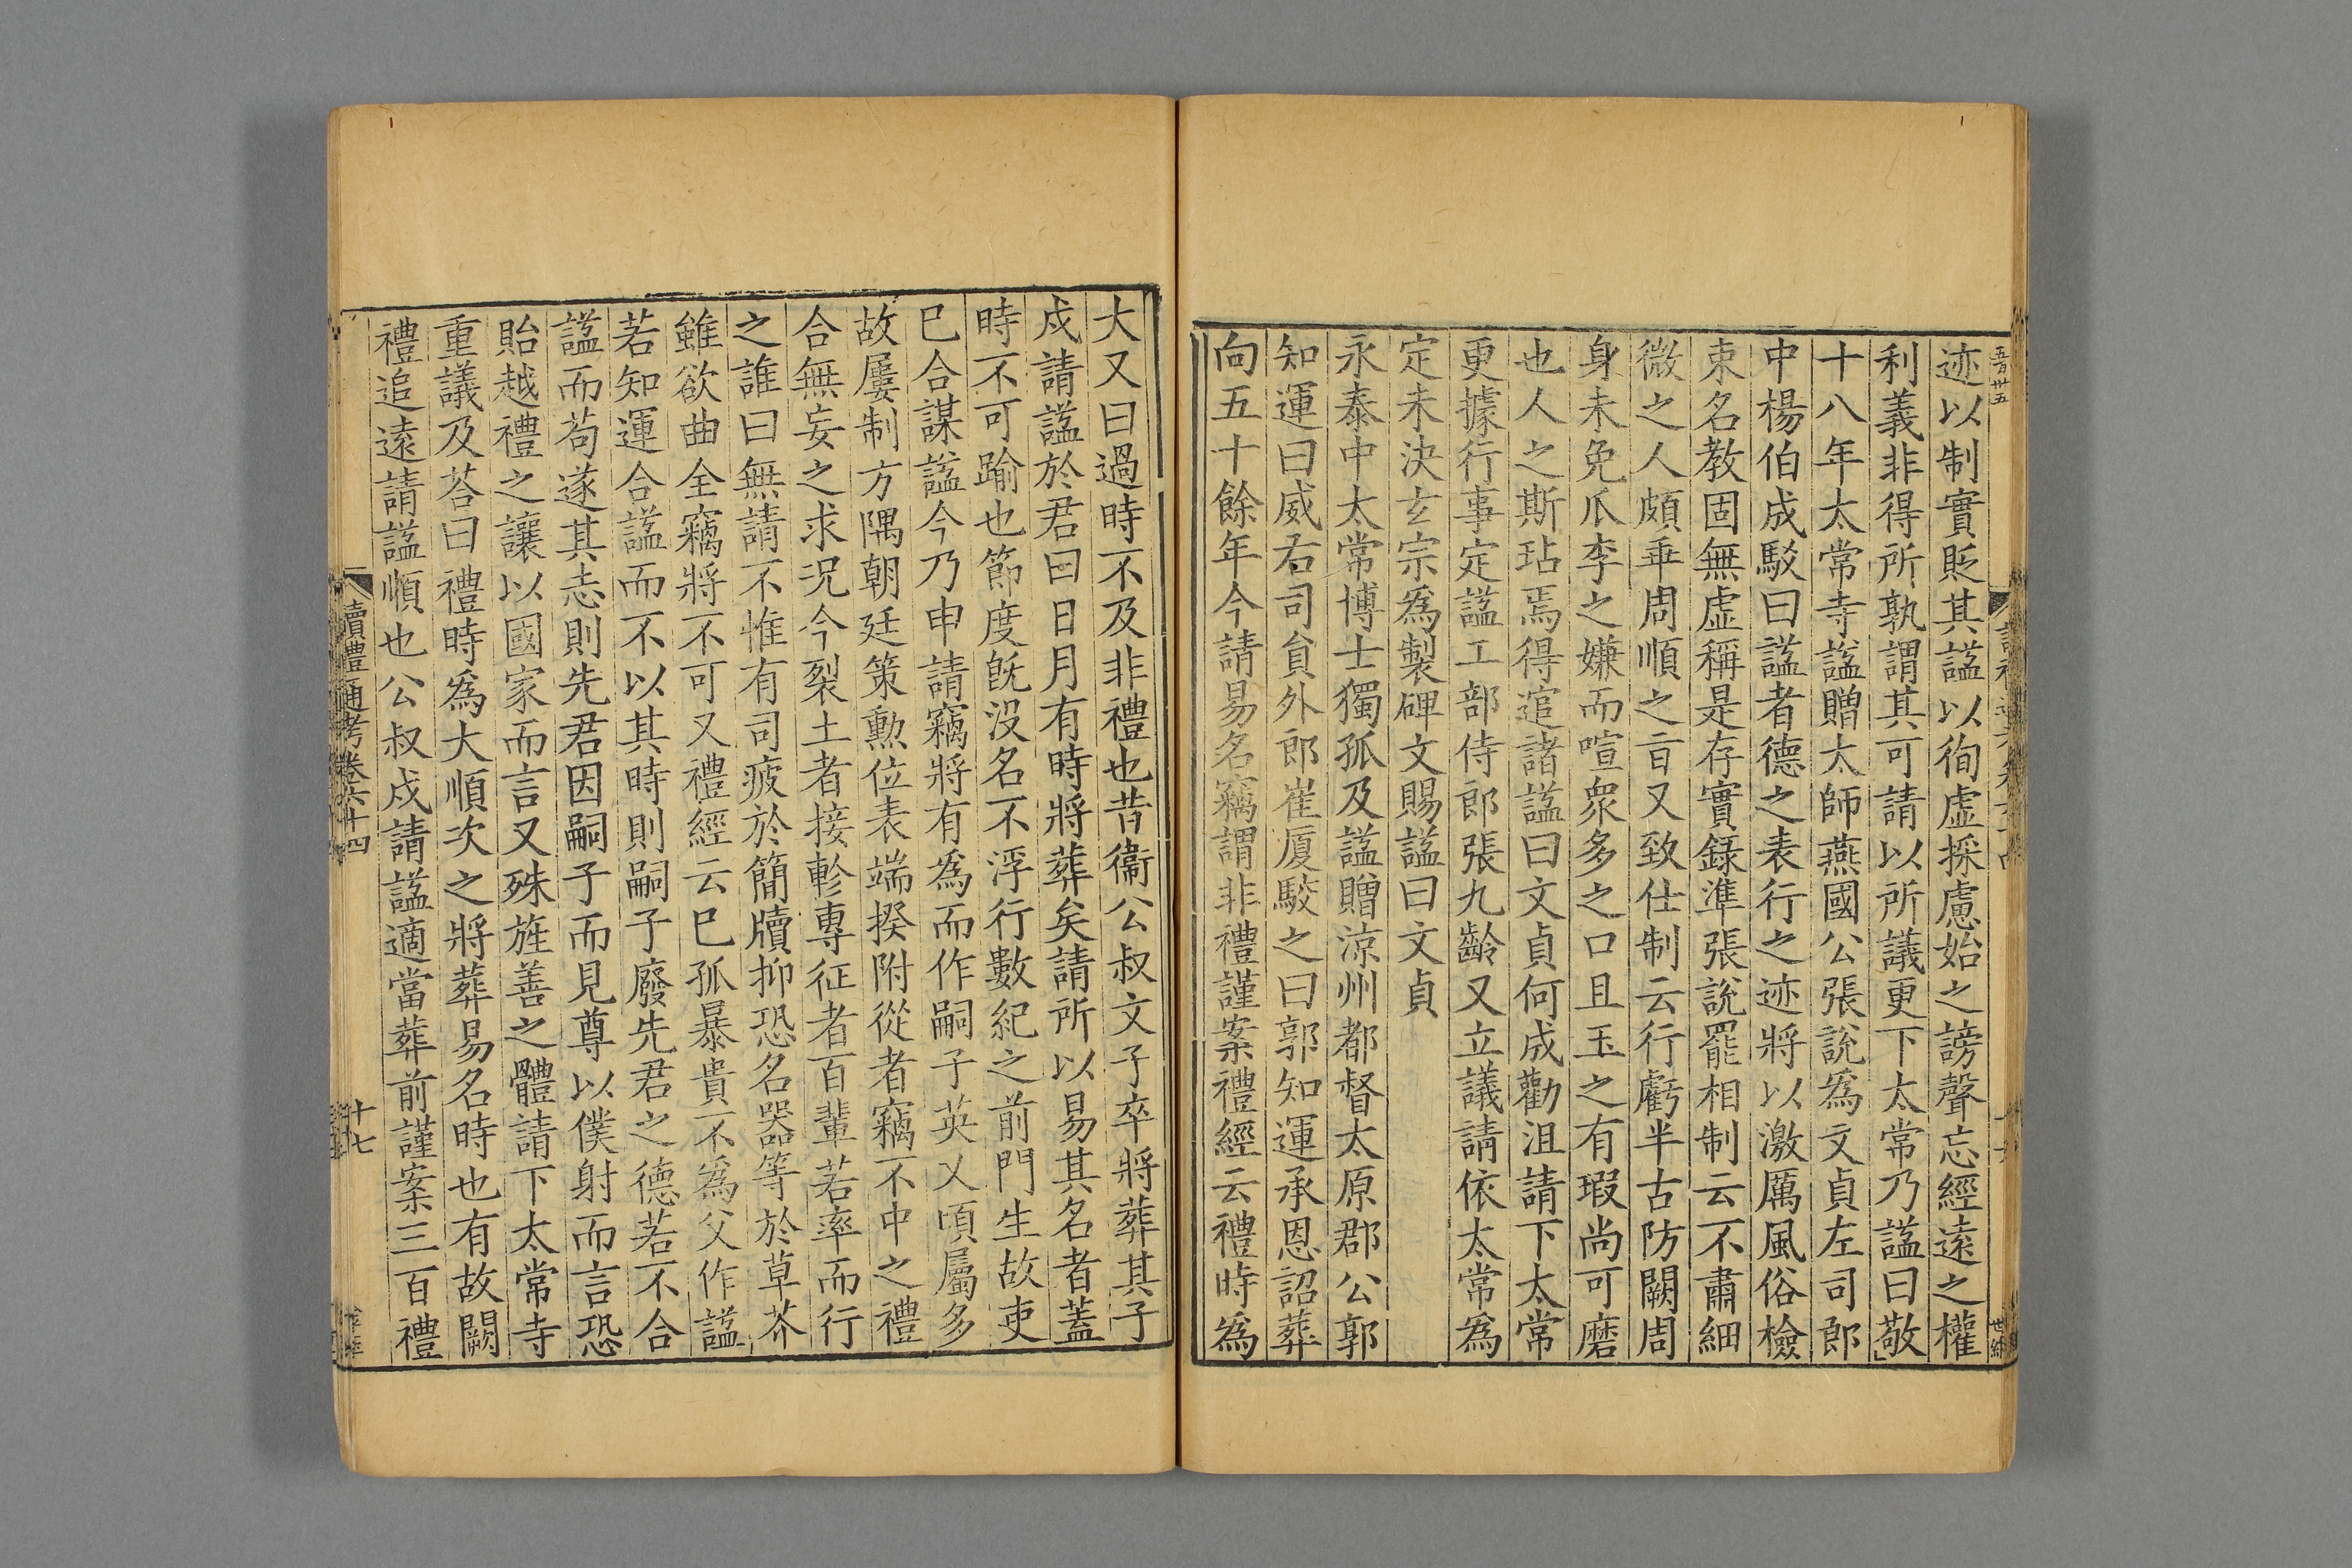 迹以制實貶其諡以徇虛採慮始之謗聲忘經遠之權
利義非得所孰謂其可請以所議更下太常乃諡曰敬
十八年太常寺諡贈太師燕國公張說爲文貞左司郎
中楊伯成駁曰諡者德之表行之迹將以激厲風俗檢
束名教固無虛稱是存實錄準張說罷相制云不肅細
微之人頗乖周順之旨又致仕制云行虧半古防闕周
身未免瓜李之嫌而喧衆多之口且玉之有瑕尚可磨
也人之斯玷焉得逭諸諡曰文貞何成勸沮請下太常
更據行事定諡工部侍郎張九齡又立議請依太常爲
定未決玄宗爲製碑文賜諡曰文貞
永泰中太常博士獨孤及諡贈涼州都督太原郡公郭
知運曰威右司貟外郎崔厦駮之曰郭知運承恩詔葬
向五十餘年今請易名竊謂非禮謹案禮經云禮時爲
大又曰過時不及非禮也昔衞公叔文子卒將葬其子
戍請諡於君曰日月有時將葬矣請所以易其名者蓋
時不可踰也節度旣沒名不浮行數紀之前門生故吏
已合謀諡今乃申請竊將有爲而作嗣子英乂頃屬多
故屢制方隅朝廷策勳位表端揆附從者竊不中之禮
合無妄之求況今裂土者接軫專征者百輩若率而行
之誰曰無請不惟有司疲於簡牘抑恐名器等於草芥
雖欲曲全竊將不可又禮經云已孤暴貴不爲父作諡
若知運合諡而不以其時則嗣子廢先君之德若不合
諡而苟遂其志則先君因嗣子而見尊以僕射而言恐
貽越禮之讓以國家而言又殊旌善之體請下太常寺
重議及荅曰禮時爲大順次之將葬易名時也有故闕
禮追遠請諡順也公叔戍請諡適當葬前謹案三百禮
讀禮通考卷六十四
十七